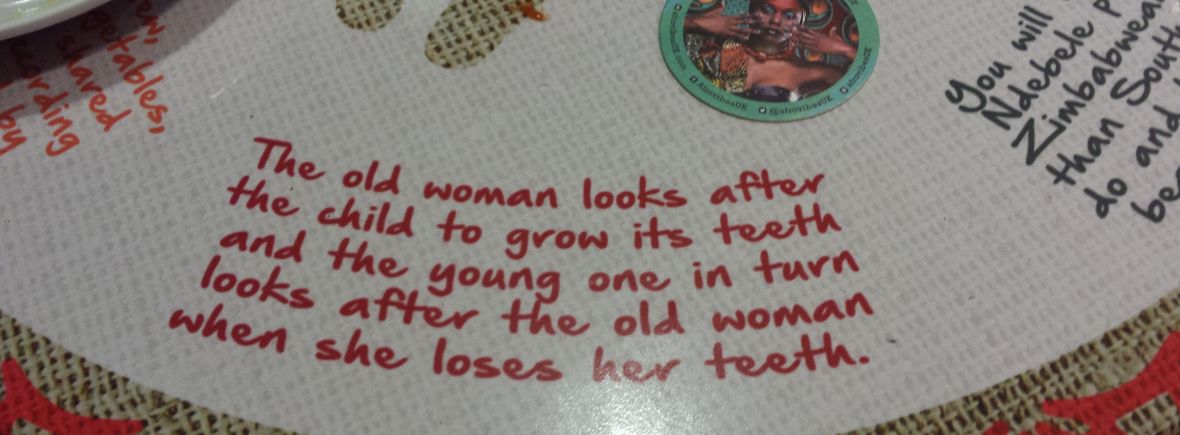 The old woman looks after
the child to grow its teeth
and the young one in turn
looks after the old woman
when she loses her teeth.
You will
Ndebele
Zimbabwean
than South
do and
shared
by
AfrovibesUK
@afrovibesUK